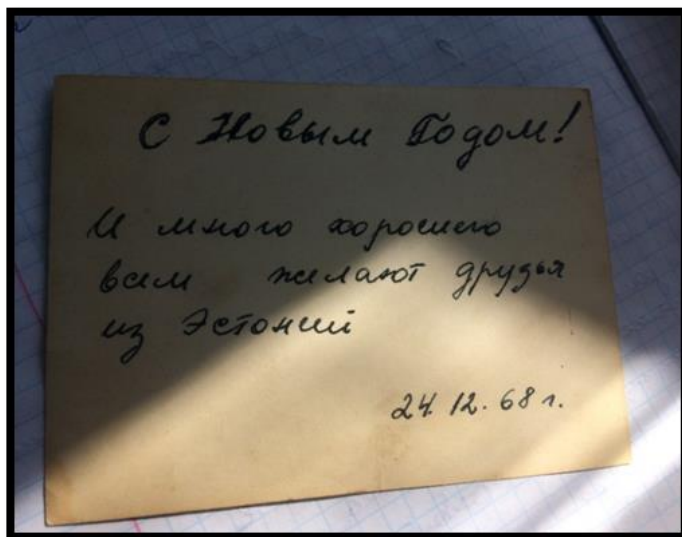 С Новым Годом!
И много хорошего
всем желают друзья
из Эстоний
24. 12. 68 г.